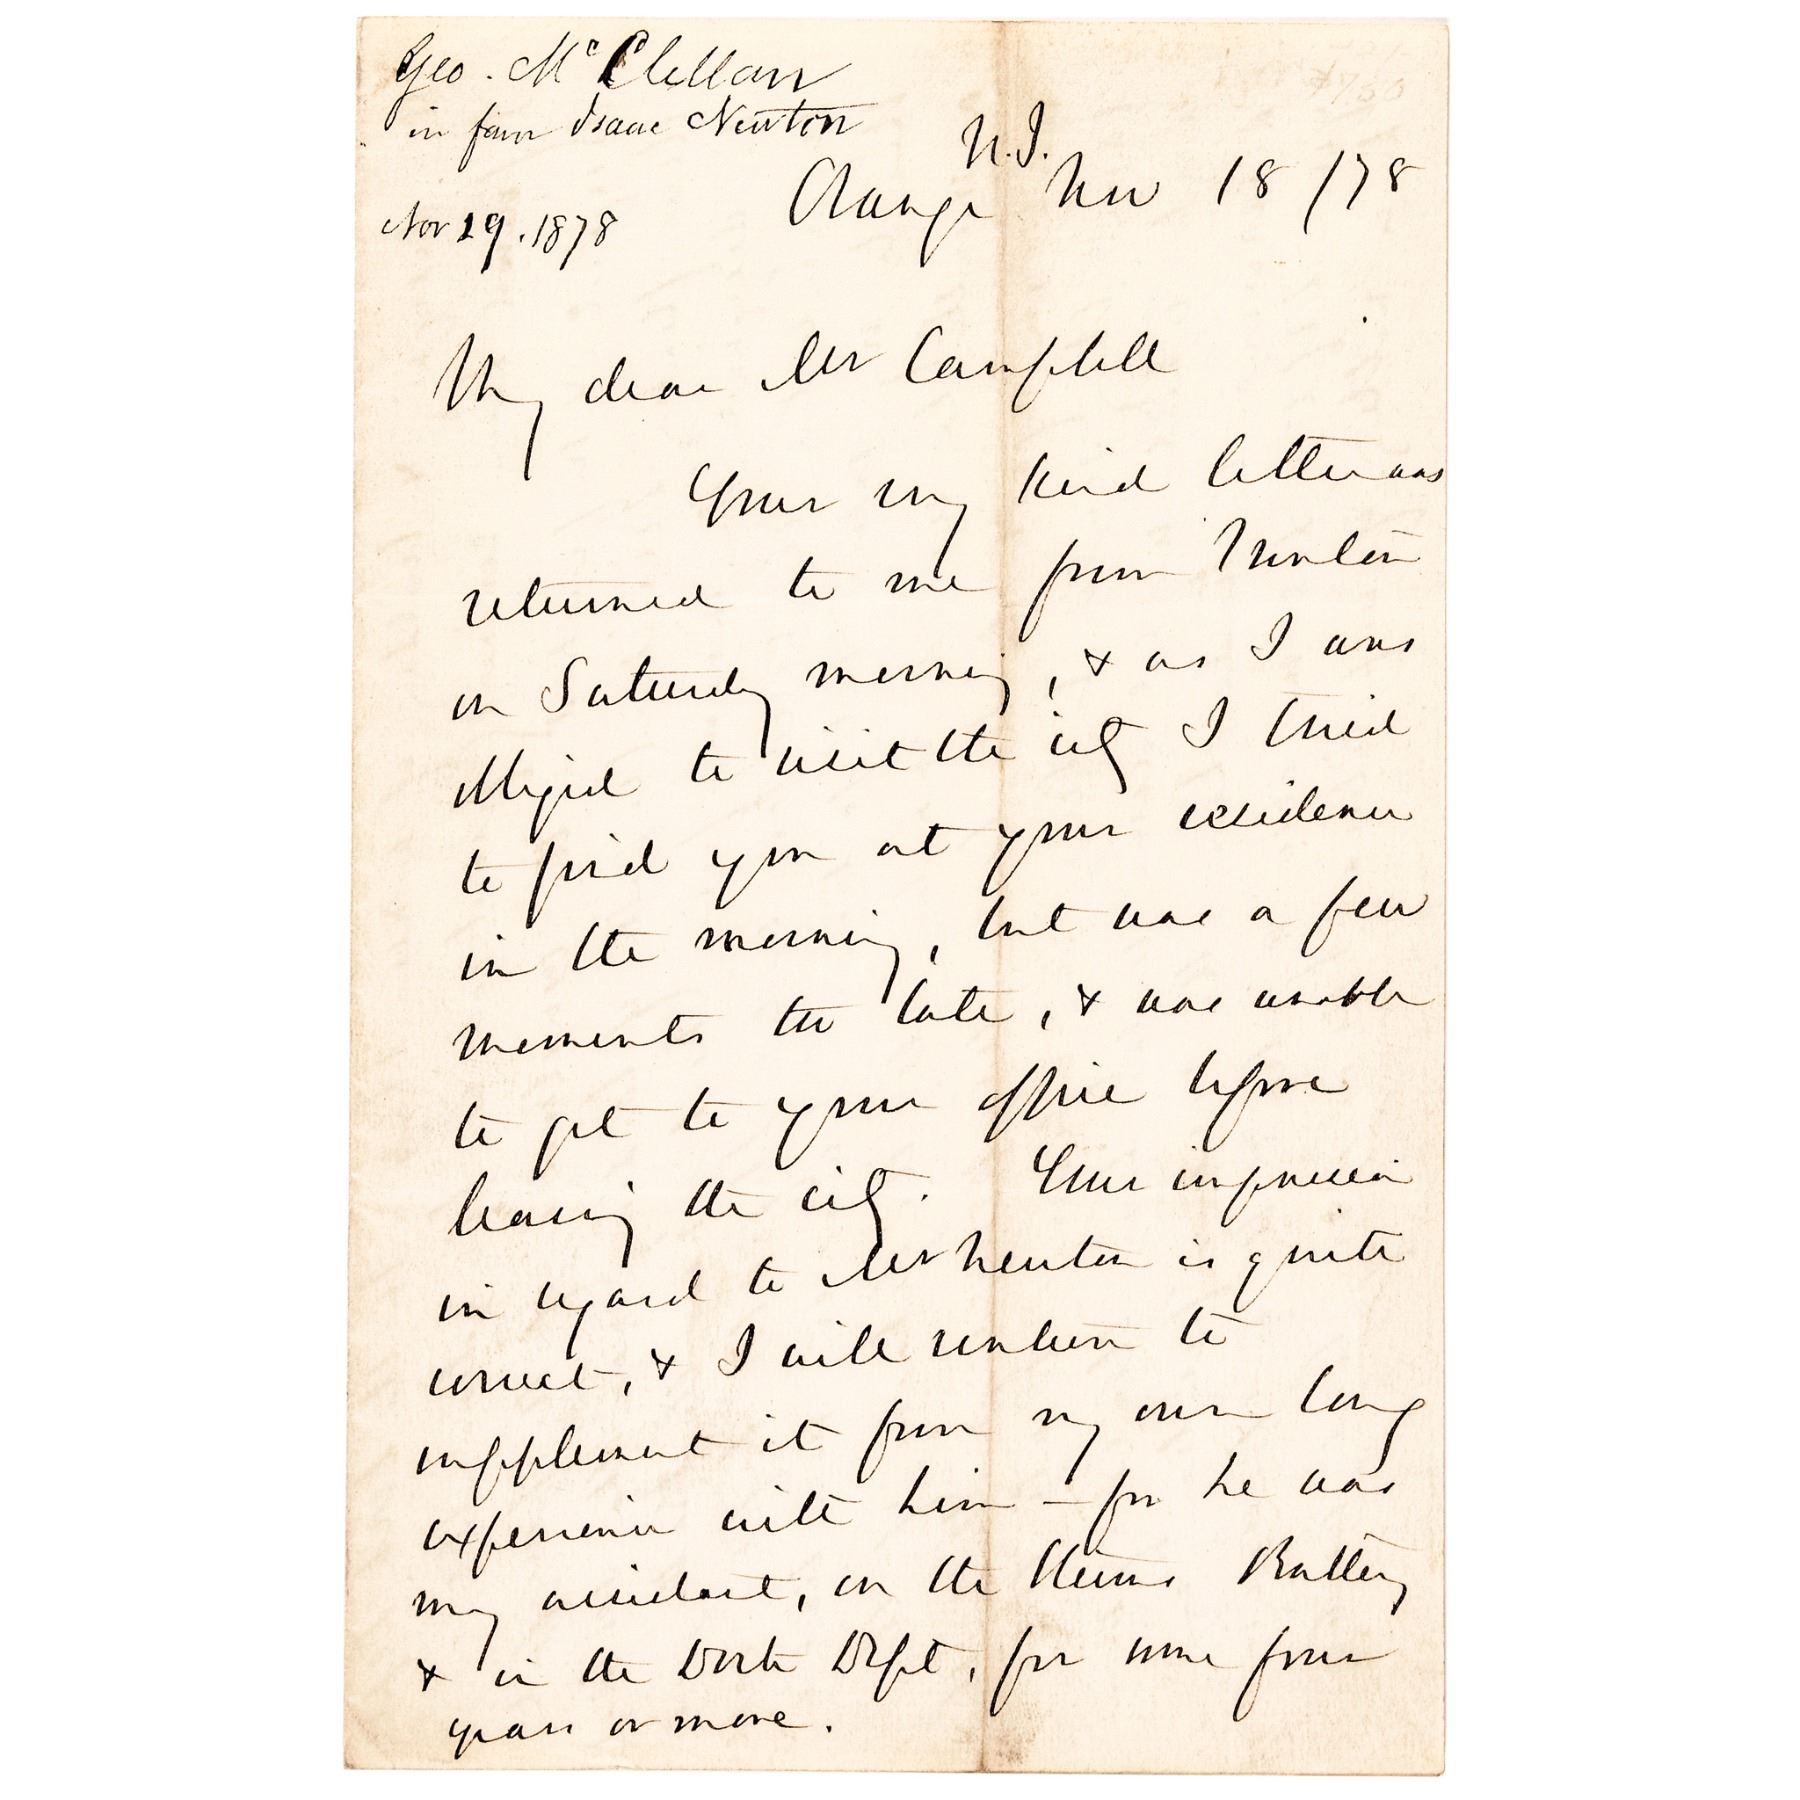 Geo. McClellan
in favor Isaac Newton
Nov 19. 1878
N.J.
Orange Nov 18 /78
My dear Mr Campbell
Your very kind letter was
returned to me from Trenton
on Saturday morning, & as I was
obliged to visit the city I tried
to find you at your residence
in the morning, but was a few
moments too late, & was unable
to get to your office before
leaving the city. Your impression
in regard to Mr Newton is quite
correct, & I will venture to
supplement it from my own long
experience with him - for he was
my assistant, on the Stevens Battery
& in the Dock Dept, for some four
years or more.